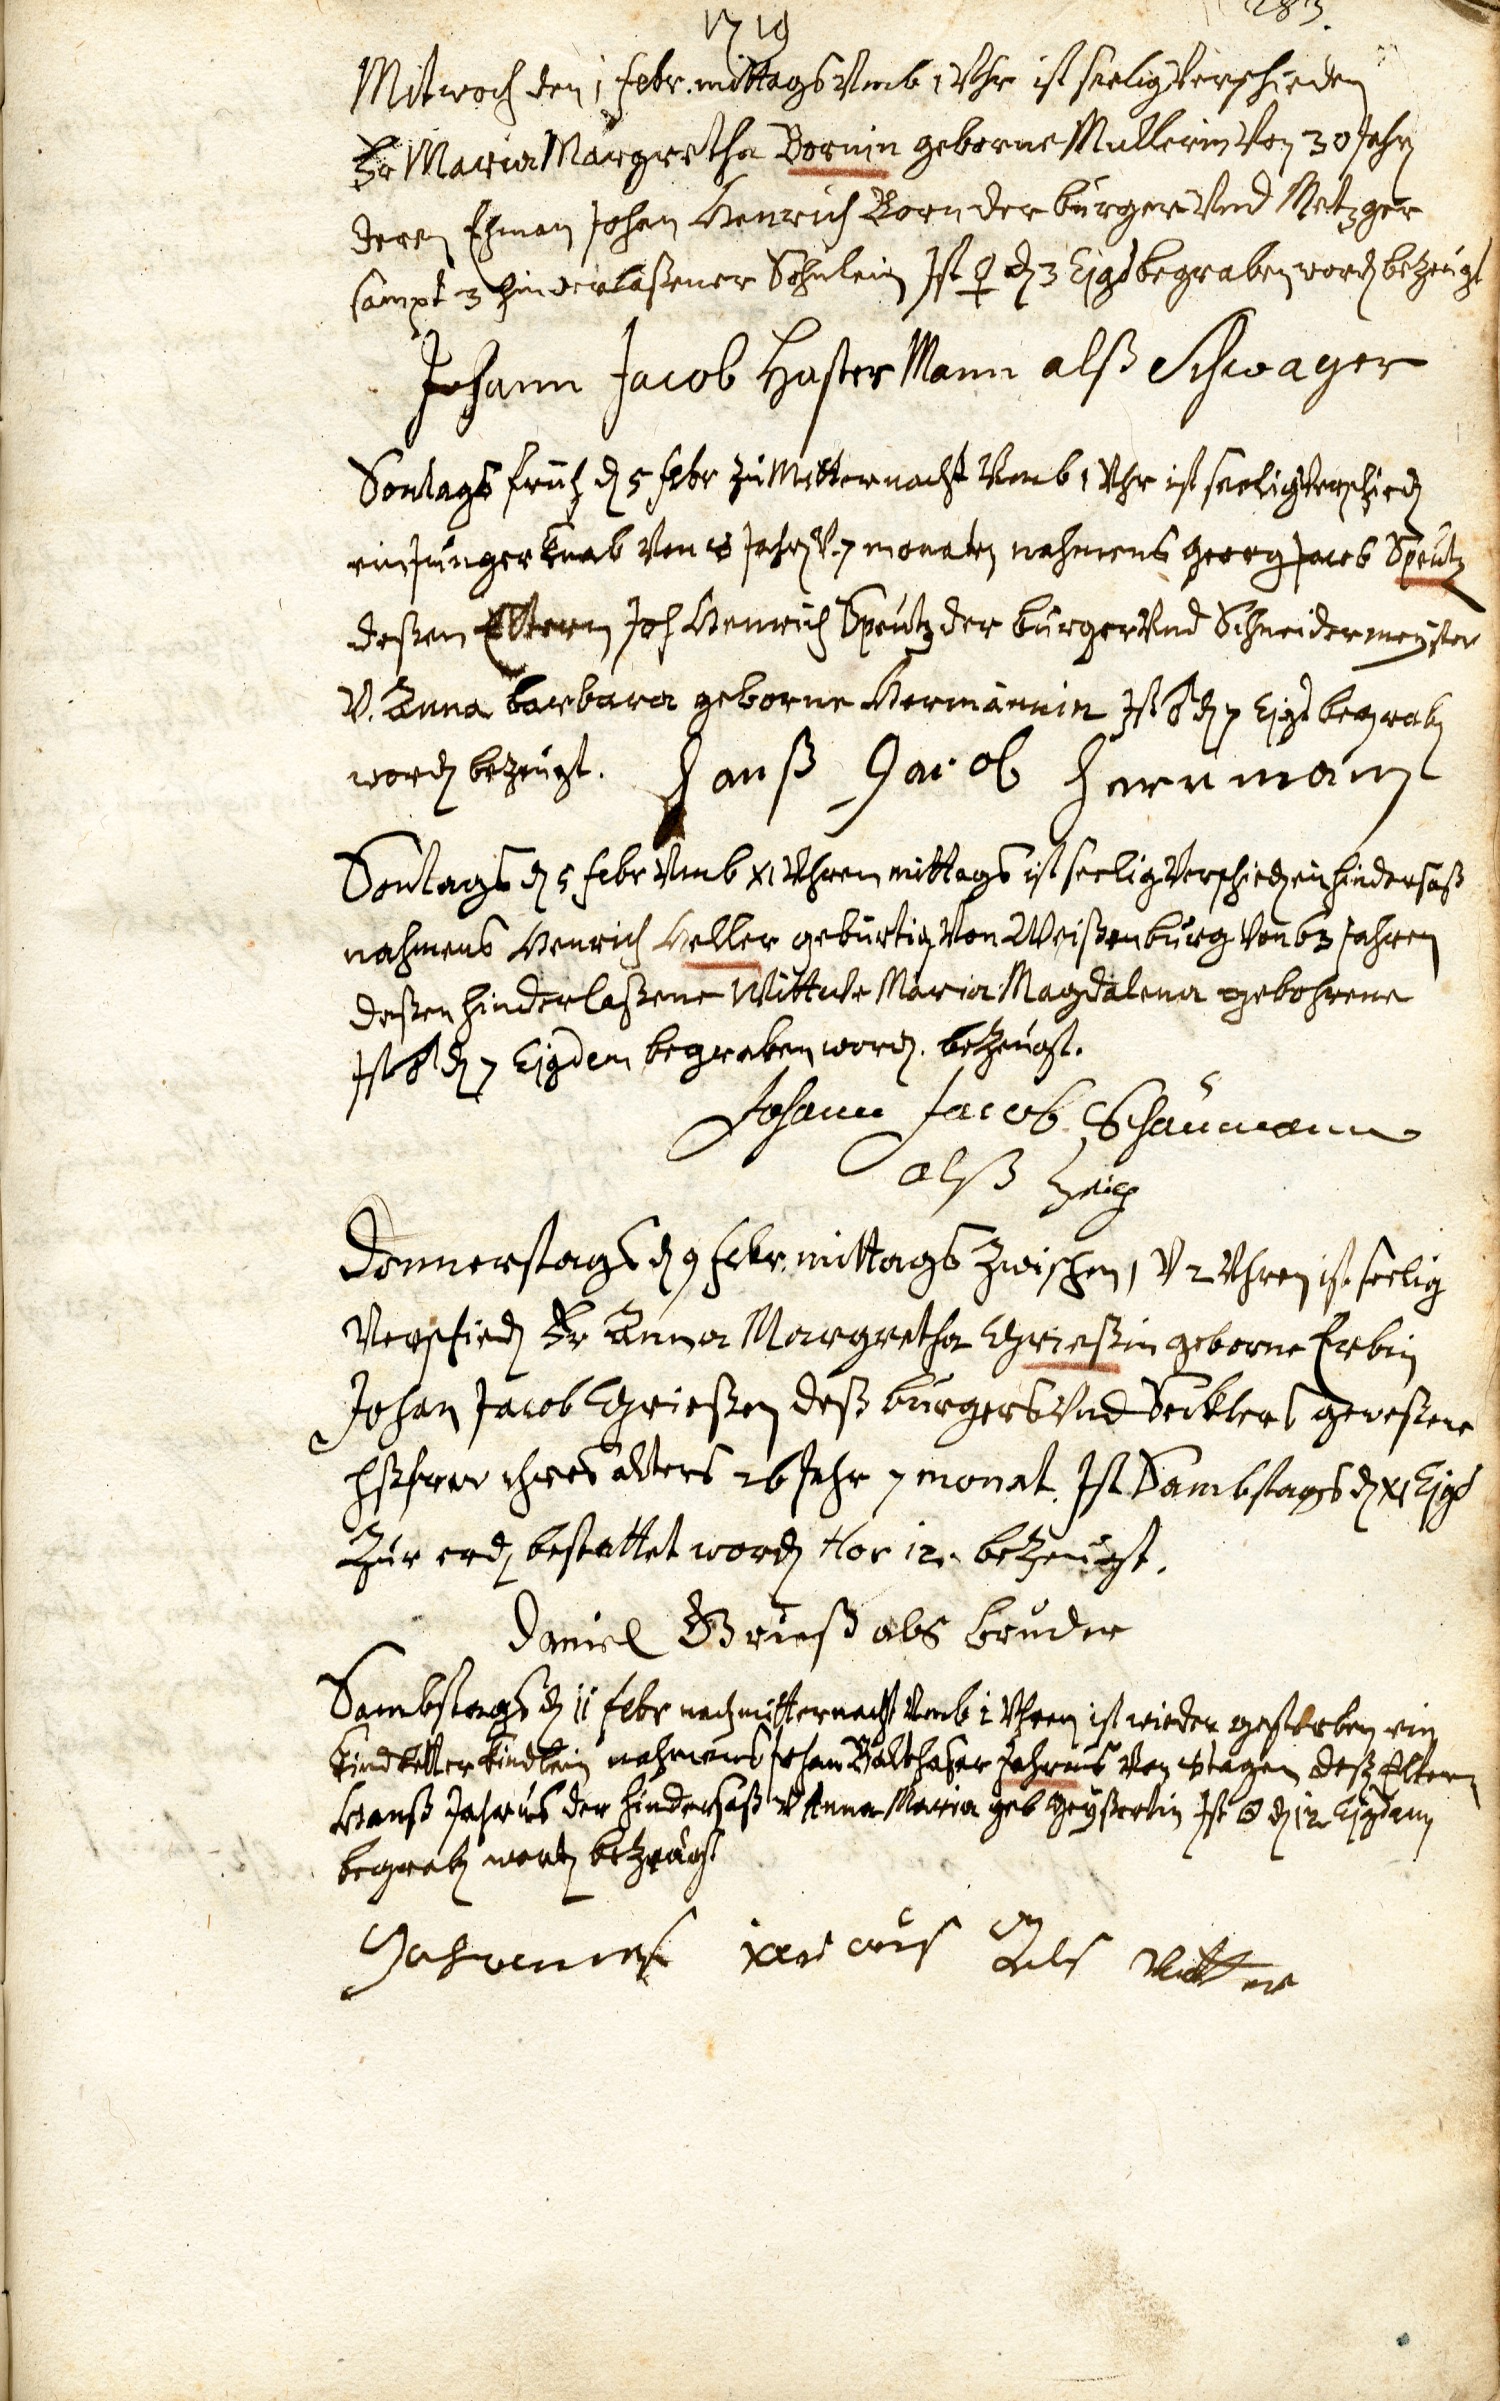 1719
283.
Mitwoch den 1 febr. mittags Vmb 1 Vhr ist seelig Verschieden
Fr Maria Margretha Bornin geborne Mullerin Von 30 Jahrn
deren Ehman Johan Henrich Born der burger Vnd Metzger
sampt 3 hinderlaßener Söhnlein Ist ♀ dn 3 Ejgd begraben word bezeugt
Johann Jacob Haster Mann alß Schwager
Sontags früh dn 5 febr zu Mitternacht Vmb 1 Vhr ist seelig Verschiedn
ein Junger Knab Von Jahrn V. 7 monaten nahmens Georg Jacob Speutz
deßen Eltern Joh Henrich Speutz der burger Vnd Schneidermeyster
V. Anna barbara geborne Hermännin Ist ♂ dn 7 Ejgd begrabn
wordn bezeugt. Hanß Jacob Herrmann
Sontags dn 5 febr Vmb XI Vhren mittags ist seelig Verschiedn ein hindersaß
nahmens Henrich Heller gebürtig Von Weißenburg Von 63 Jahren
deßen hinderlaßene Wittwe Maria Magdalena gebohrene
Ist ♂ dn 7 Ejgden begraben wordn. bezeugt.
Johann Jacob Schaümann
alß Zeug
Donnerstags dn 9 febr. mittags Zwischen 1 V 2 Vhren ist seelig
Verschiedn Fr Anna Margretha Grießin geborne Erbin
Johan Jacob Grießen deß burgers Vnd Secklers geweßene
Hßfraw ihres alters 26 Jahr 7 monat. Ist Sambstags dn XI Ejgd
Zur erdn bestattet wordn Hor 12. bezeugt.
Daniel Grieß als bruder
Sambstags dn 11 febr nach mitternacht Vmb 1 Vhren ist wieder gestorben ein
Kindbetter Kindlein nahmens Johan Balthasar Jahraus Von tagen deß Eltern
Hanß Jahraus der hindersaß V Anna Maria geb Ist ☉ dn 12 Ejgdem
begrabn wordn bezeugt
Johannes Jaraus Als Vatter